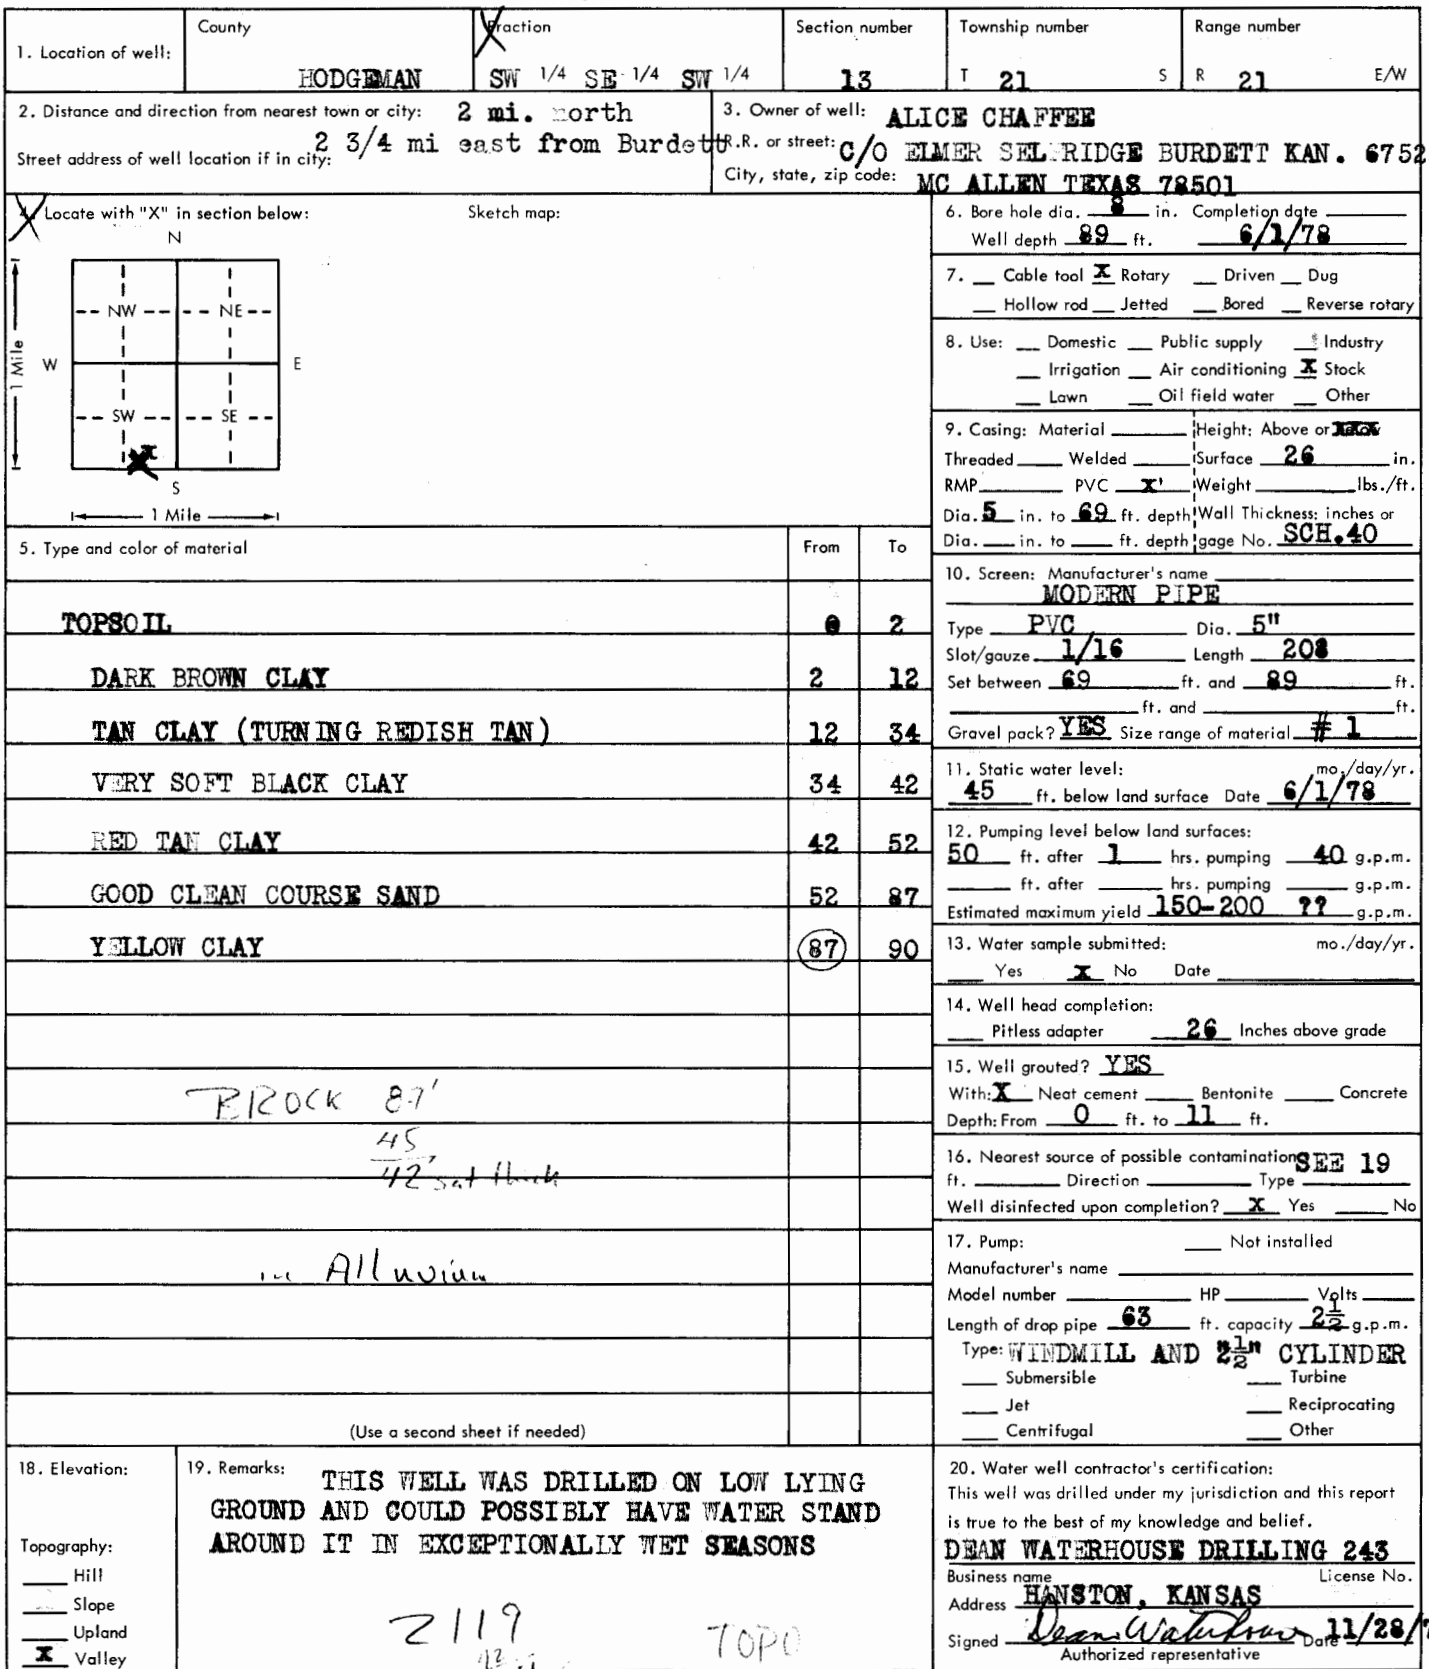 1. Location of well:
County
HODGEMAN
Fraction
SW 1/4 SE 1/4 SW 1/4
Section number
13
Township number
T 21 S
Range number
R 21 E/W
2. Distance and direction from nearest town or city: 2 mi. north
2 3/4 mi east from Burdett
Street address of well location if in city:
3. Owner of well: ALICE CHAFFEE
R.R. or street: C/O ELMER SEL RIDGE BURDETT KAN. 6752
City, state, zip code: MC ALLEN TEXAS 78501
4. Locate with "X" in section below:
Sketch map:
N
NW NE
W E
1 Mile
SW SE
X
S
1 Mile
5. Type and color of material From To
TOPSOIL 0 2
DARK BROWN CLAY 2 12
TAN CLAY (TURNING REDISH TAN) 12 34
VERY SOFT BLACK CLAY 34 42
RED TAN CLAY 42 52
GOOD CLEAN COURSE SAND 52 87
YELLOW CLAY 87 90
BROCK 87'
45
42 sat thick
in Alluvium
(Use a second sheet if needed)
6. Bore hole dia. 8 in. Completion date
Well depth 89 ft. 6/1/78
7. __ Cable tool X Rotary __ Driven __ Dug
__ Hollow rod __ Jetted __ Bored __ Reverse rotary
8. Use: __ Domestic __ Public supply __ Industry
__ Irrigation __ Air conditioning X Stock
__ Lawn __ Oil field water __ Other
9. Casing: Material ____ Height: Above or
Threaded ____ Welded ____ Surface 26 in.
RMP ____ PVC X Weight ____ lbs./ft.
Dia. 5 in. to 69 ft. depth Wall Thickness: inches or
Dia. __ in. to __ ft. depth gage No. SCH.40
10. Screen: Manufacturer's name
MODERN PIPE
Type PVC Dia. 5"
Slot/gauze 1/16 Length 208
Set between 69 ft. and 89 ft.
____ ft. and ____ ft.
Gravel pack? YES Size range of material # 1
11. Static water level: mo./day/yr.
45 ft. below land surface Date 6/1/78
12. Pumping level below land surfaces:
50 ft. after 1 hrs. pumping 40 g.p.m.
____ ft. after ____ hrs. pumping ____ g.p.m.
Estimated maximum yield 150-200 ?? g.p.m.
13. Water sample submitted: mo./day/yr.
__ Yes X No Date ____
14. Well head completion:
__ Pitless adapter 26 Inches above grade
15. Well grouted? YES
With: X Neat cement __ Bentonite __ Concrete
Depth: From 0 ft. to 11 ft.
16. Nearest source of possible contamination SEE 19
ft. ____ Direction ____ Type ____
Well disinfected upon completion? X Yes __ No
17. Pump: __ Not installed
Manufacturer's name ____
Model number ____ HP ____ Volts ____
Length of drop pipe 63 ft. capacity 2½ g.p.m.
Type: WINDMILL AND 2½" CYLINDER
__ Submersible __ Turbine
__ Jet __ Reciprocating
__ Centrifugal __ Other
18. Elevation:
Topography:
__ Hill
__ Slope
__ Upland
X Valley
19. Remarks: THIS WELL WAS DRILLED ON LOW LYING
GROUND AND COULD POSSIBLY HAVE WATER STAND
AROUND IT IN EXCEPTIONALLY WET SEASONS
2119
TOPO
20. Water well contractor's certification:
This well was drilled under my jurisdiction and this report
is true to the best of my knowledge and belief.
DEAN WATERHOUSE DRILLING 243
Business name License No.
Address HANSTON, KANSAS
Signed Dean Waterhouse Date 11/28/7
Authorized representative